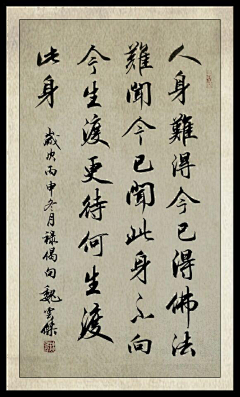 人身難得今已得佛法
難聞今已聞此身不向
今生渡更待何生渡
此身
歲次丙申冬月禄偈句 魏雲傑